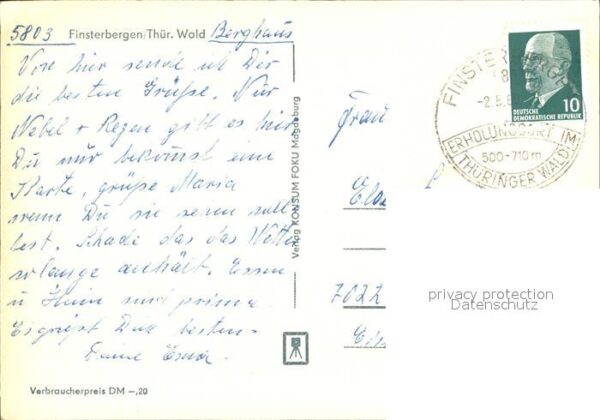 5803 Finsterbergen/Thür. Wald Berghaus
Von hier sende ich Dir
die besten Grüße. Nur
Nebel + Regen gibt es hier
Du nur bekomst eine
Karte, grüße Maria
wenn Du sie sehen sollt
best. Schade das das Wetter
solange anhält. Essen
u Heim sind prima
Es grüßt Dich bestens
Deine
Verbraucherpreis DM –,20
Verlag KONSUM FOKU Magdeburg
Frau
7022
FINSTERBERGEN
-2.5.
ERHOLUNGSORT IM
500-710m
THÜRINGER WALD
10
DEUTSCHE
DEMOKRATISCHE REPUBLIK
privacy protection
Datenschutz